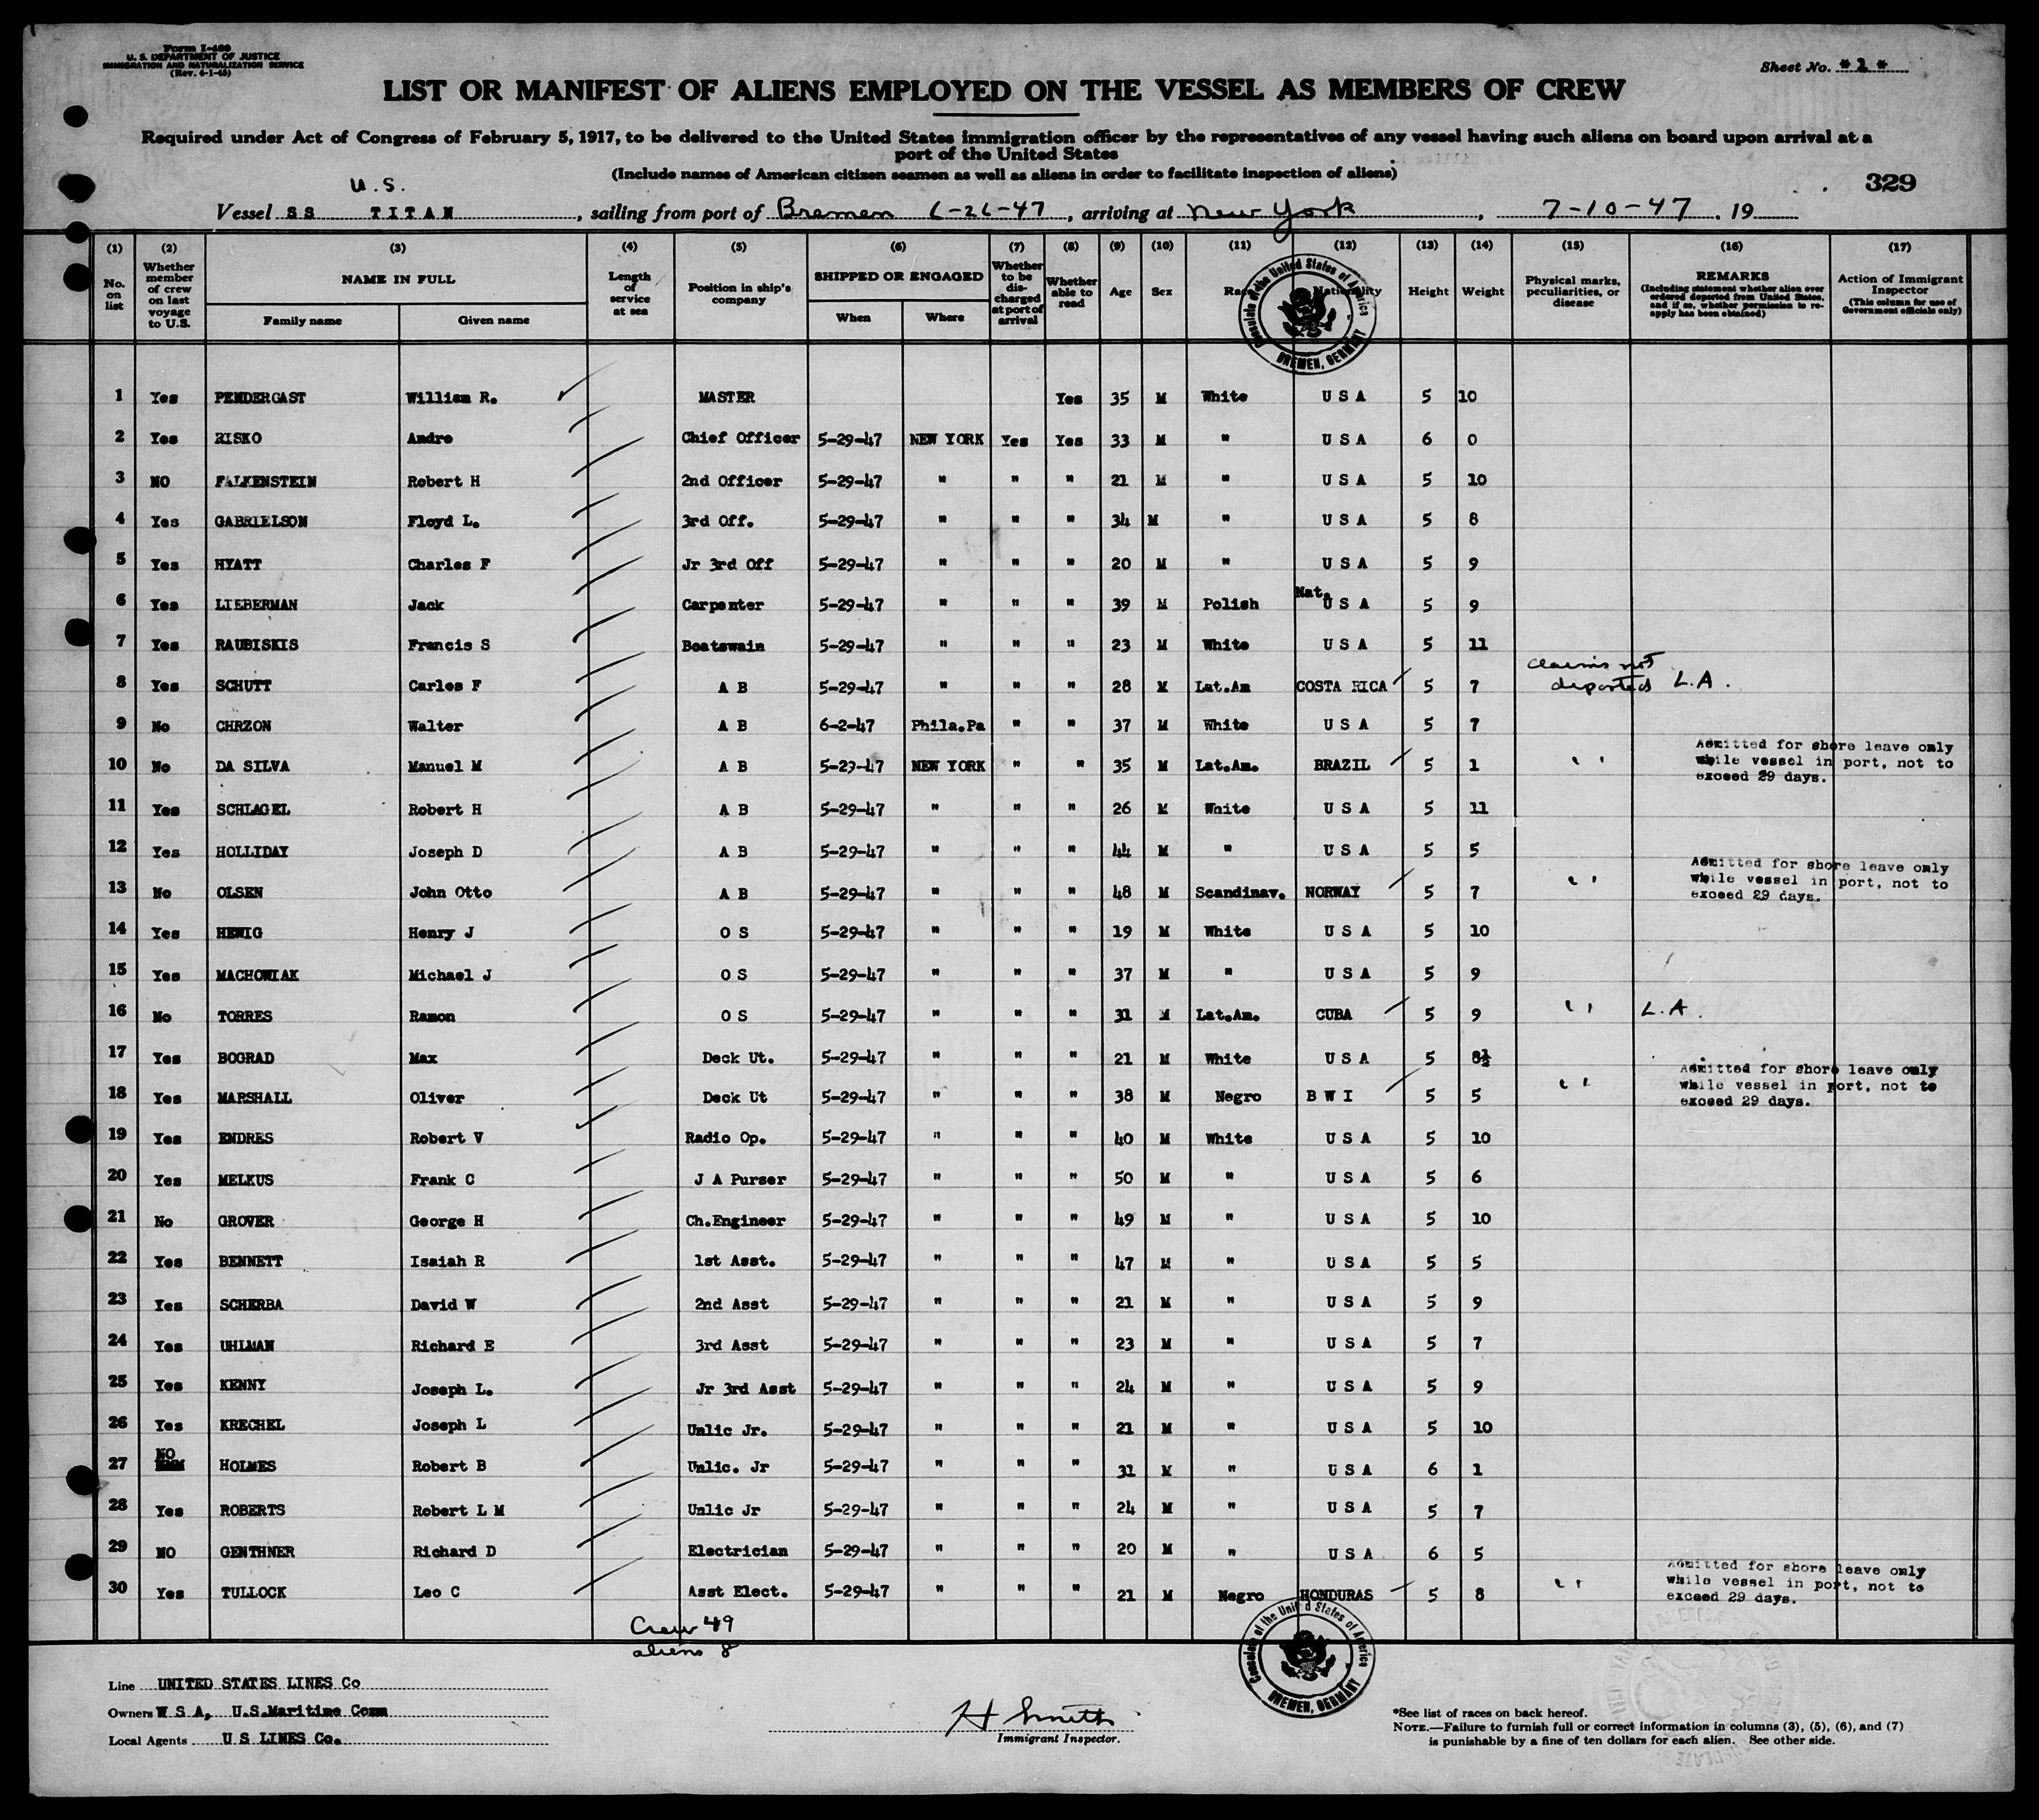 Form I-489
U. S. DEPARTMENT OF JUSTICE
IMMIGRATION AND NATURALIZATION SERVICE
(Rev. 4-1-45)
Sheet No. *1*
LIST OR MANIFEST OF ALIENS EMPLOYED ON THE VESSEL AS MEMBERS OF CREW
Required under Act of Congress of February 5, 1917, to be delivered to the United States immigration officer by the representatives of any vessel having such aliens on board upon arrival at a
port of the United States
(Include names of American citizen seamen as well as aliens in order to facilitate inspection of aliens)
329
U.S.
Vessel SS TITAN, sailing from port of Bremen 6-26-47, arriving at New York, 7-10-47, 19
(1) (2) (3) (4) (5) (6) (7) (8) (9) (10) (11) (12) (13) (14) (15) (16) (17)
No. on list
Whether member of crew on last voyage to U.S.
NAME IN FULL
Family name
Given name
Length of service at sea
Position in ship's company
SHIPPED OR ENGAGED
When
Where
Whether to be discharged at port of arrival
Whether able to read
Age
Sex
Race
Nationality
Height
Weight
Physical marks, peculiarities, or disease
REMARKS
(Including statement whether alien ever ordered deported from United States, and if so, whether permission to reapply has been obtained)
Action of Immigrant Inspector
(This column for use of Government officials only)
Consulate of the United States of America
BREMEN, GERMANY
1 Yes PENDERGAST William R. MASTER Yes 35 M White U S A 5 10
2 Yes RISKO Andre Chief Officer 5-29-47 NEW YORK Yes Yes 33 M " U S A 6 0
3 NO FALKENSTEIN Robert H 2nd Officer 5-29-47 " " " 21 M " U S A 5 10
4 Yes GABRIELSON Floyd L. 3rd Off. 5-29-47 " " " 34 M " U S A 5 8
5 Yes HYATT Charles F Jr 3rd Off 5-29-47 " " " 20 M " U S A 5 9
6 Yes LIEBERMAN Jack Carpenter 5-29-47 " " " 39 M Polish Nat. U S A 5 9
7 Yes RAUBISKIS Francis S Boatswain 5-29-47 " " " 23 M White U S A 5 11
8 Yes SCHUTT Carlos F A B 5-29-47 " " " 28 M Lat.Am COSTA RICA 5 7 claims not deported L.A.
9 No CHRZON Walter A B 6-2-47 Phila.Pa " " 37 M White U S A 5 7
10 No DA SILVA Manuel M A B 5-29-47 NEW YORK " " 35 M Lat.Am. BRAZIL 5 1 " Admitted for shore leave only
while vessel in port, not to
exceed 29 days.
11 Yes SCHLAGEL Robert H A B 5-29-47 " " " 26 M White U S A 5 11
12 Yes HOLLIDAY Joseph D A B 5-29-47 " " " 44 M " U S A 5 5
13 No OLSEN John Otto A B 5-29-47 " " " 48 M Scandinav. NORWAY 5 7 " Admitted for shore leave only
while vessel in port, not to
exceed 29 days.
14 Yes HEWIG Henry J O S 5-29-47 " " " 19 M White U S A 5 10
15 Yes MACHOWIAK Michael J O S 5-29-47 " " " 37 M " U S A 5 9
16 No TORRES Ramon O S 5-29-47 " " " 31 M Lat.Am. CUBA 5 9 " L.A.
17 Yes BOGRAD Max Deck Ut. 5-29-47 " " " 21 M White U S A 5 8½
18 Yes MARSHALL Oliver Deck Ut 5-29-47 " " " 38 M Negro B W I 5 5 " Admitted for shore leave only
while vessel in port, not to
exceed 29 days.
19 Yes ENDRES Robert V Radio Op. 5-29-47 " " " 40 M White U S A 5 10
20 Yes MELKUS Frank C J A Purser 5-29-47 " " " 50 M " U S A 5 6
21 No GROVER George H Ch.Engineer 5-29-47 " " " 49 M " U S A 5 10
22 Yes BENNETT Isaiah R 1st Asst. 5-29-47 " " " 47 M " U S A 5 5
23 Yes SCHERBA David W 2nd Asst 5-29-47 " " " 21 M " U S A 5 9
24 Yes UHLMAN Richard E 3rd Asst 5-29-47 " " " 23 M " U S A 5 7
25 Yes KENNY Joseph L. Jr 3rd Asst 5-29-47 " " " 24 M " U S A 5 9
26 Yes KRECHEL Joseph L Unlic Jr. 5-29-47 " " " 21 M " U S A 5 10
27 NO HOLMES Robert B Unlic. Jr 5-29-47 " " " 31 M " U S A 6 1
28 Yes ROBERTS Robert L M Unlic Jr 5-29-47 " " " 24 M " U S A 5 7
29 NO GENTHNER Richard D Electrician 5-29-47 " " " 20 M " U S A 6 5
30 Yes TULLOCK Leo C Asst Elect. 5-29-47 " " " 21 M Negro HONDURAS 5 8 " Admitted for shore leave only
while vessel in port, not to
exceed 29 days.
Crew 49
aliens 8
Consulate of the United States of America
BREMEN, GERMANY
Line UNITED STATES LINES Co
Owners W S A, U.S.Maritime Comm
Local Agents U S LINES Co.
H Smith
Immigrant Inspector.
*See list of races on back hereof.
NOTE.—Failure to furnish full or correct information in columns (3), (5), (6), and (7)
is punishable by a fine of ten dollars for each alien. See other side.